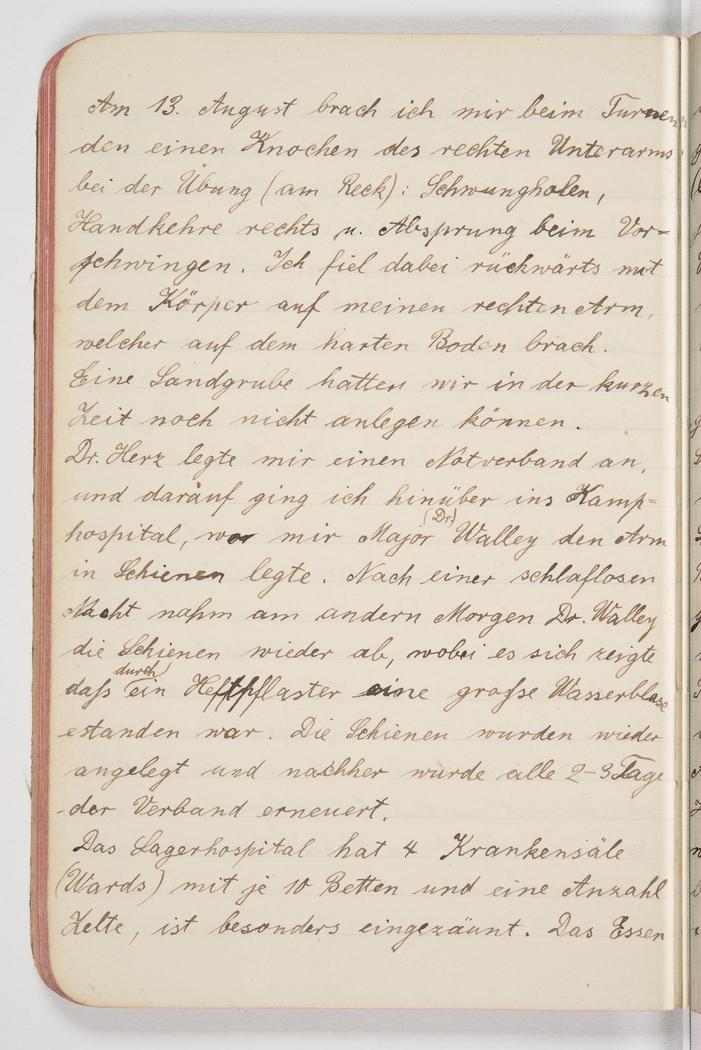 Am 13. August brach ich mir beim Turnen
den einen Knochen des rechten Unterarms
bei der Übung (am Reck): Schwungholen,
Handkehre rechts u. Absprung beim Vor=
schwingen. Ich fiel dabei rückwärts mit
dem Körper auf meinen rechten Arm,
welcher auf dem harten Boden brach.
Eine Sandgrube hatten wir in der kurzen
Zeit noch nicht anlegen können.
Dr. Herz legte mir einen Notverband an,
und darauf ging ich hinüber ins Kamp=
hospital, wo mir Major (Dr.) Walley den Arm
in Schienen legte. Nach einer schlaflosen
Nacht nahm am andern Morgen Dr. Walley
die Schienen wieder ab, wobei es sich zeigte
daß durch ein Heftpflaster eine große Wasserblase
estanden war. Die Schienen wurden wieder
angelegt und nachher wurde alle 2-3 Tage
der Verband erneuert.
Das Lagerhospital hat 4 Krankensäle
(Wards) mit je 10 Betten und eine Anzahl
Zelte, ist besonders eingezäunt. Das Essen